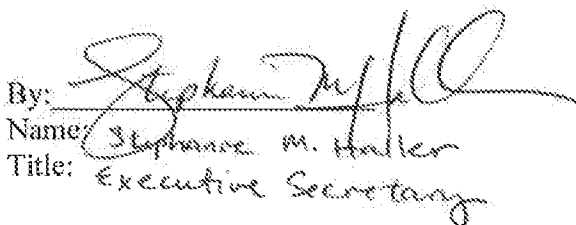 By: Stephanie M
Name: Stephanie M.
Title: Executive Secretary